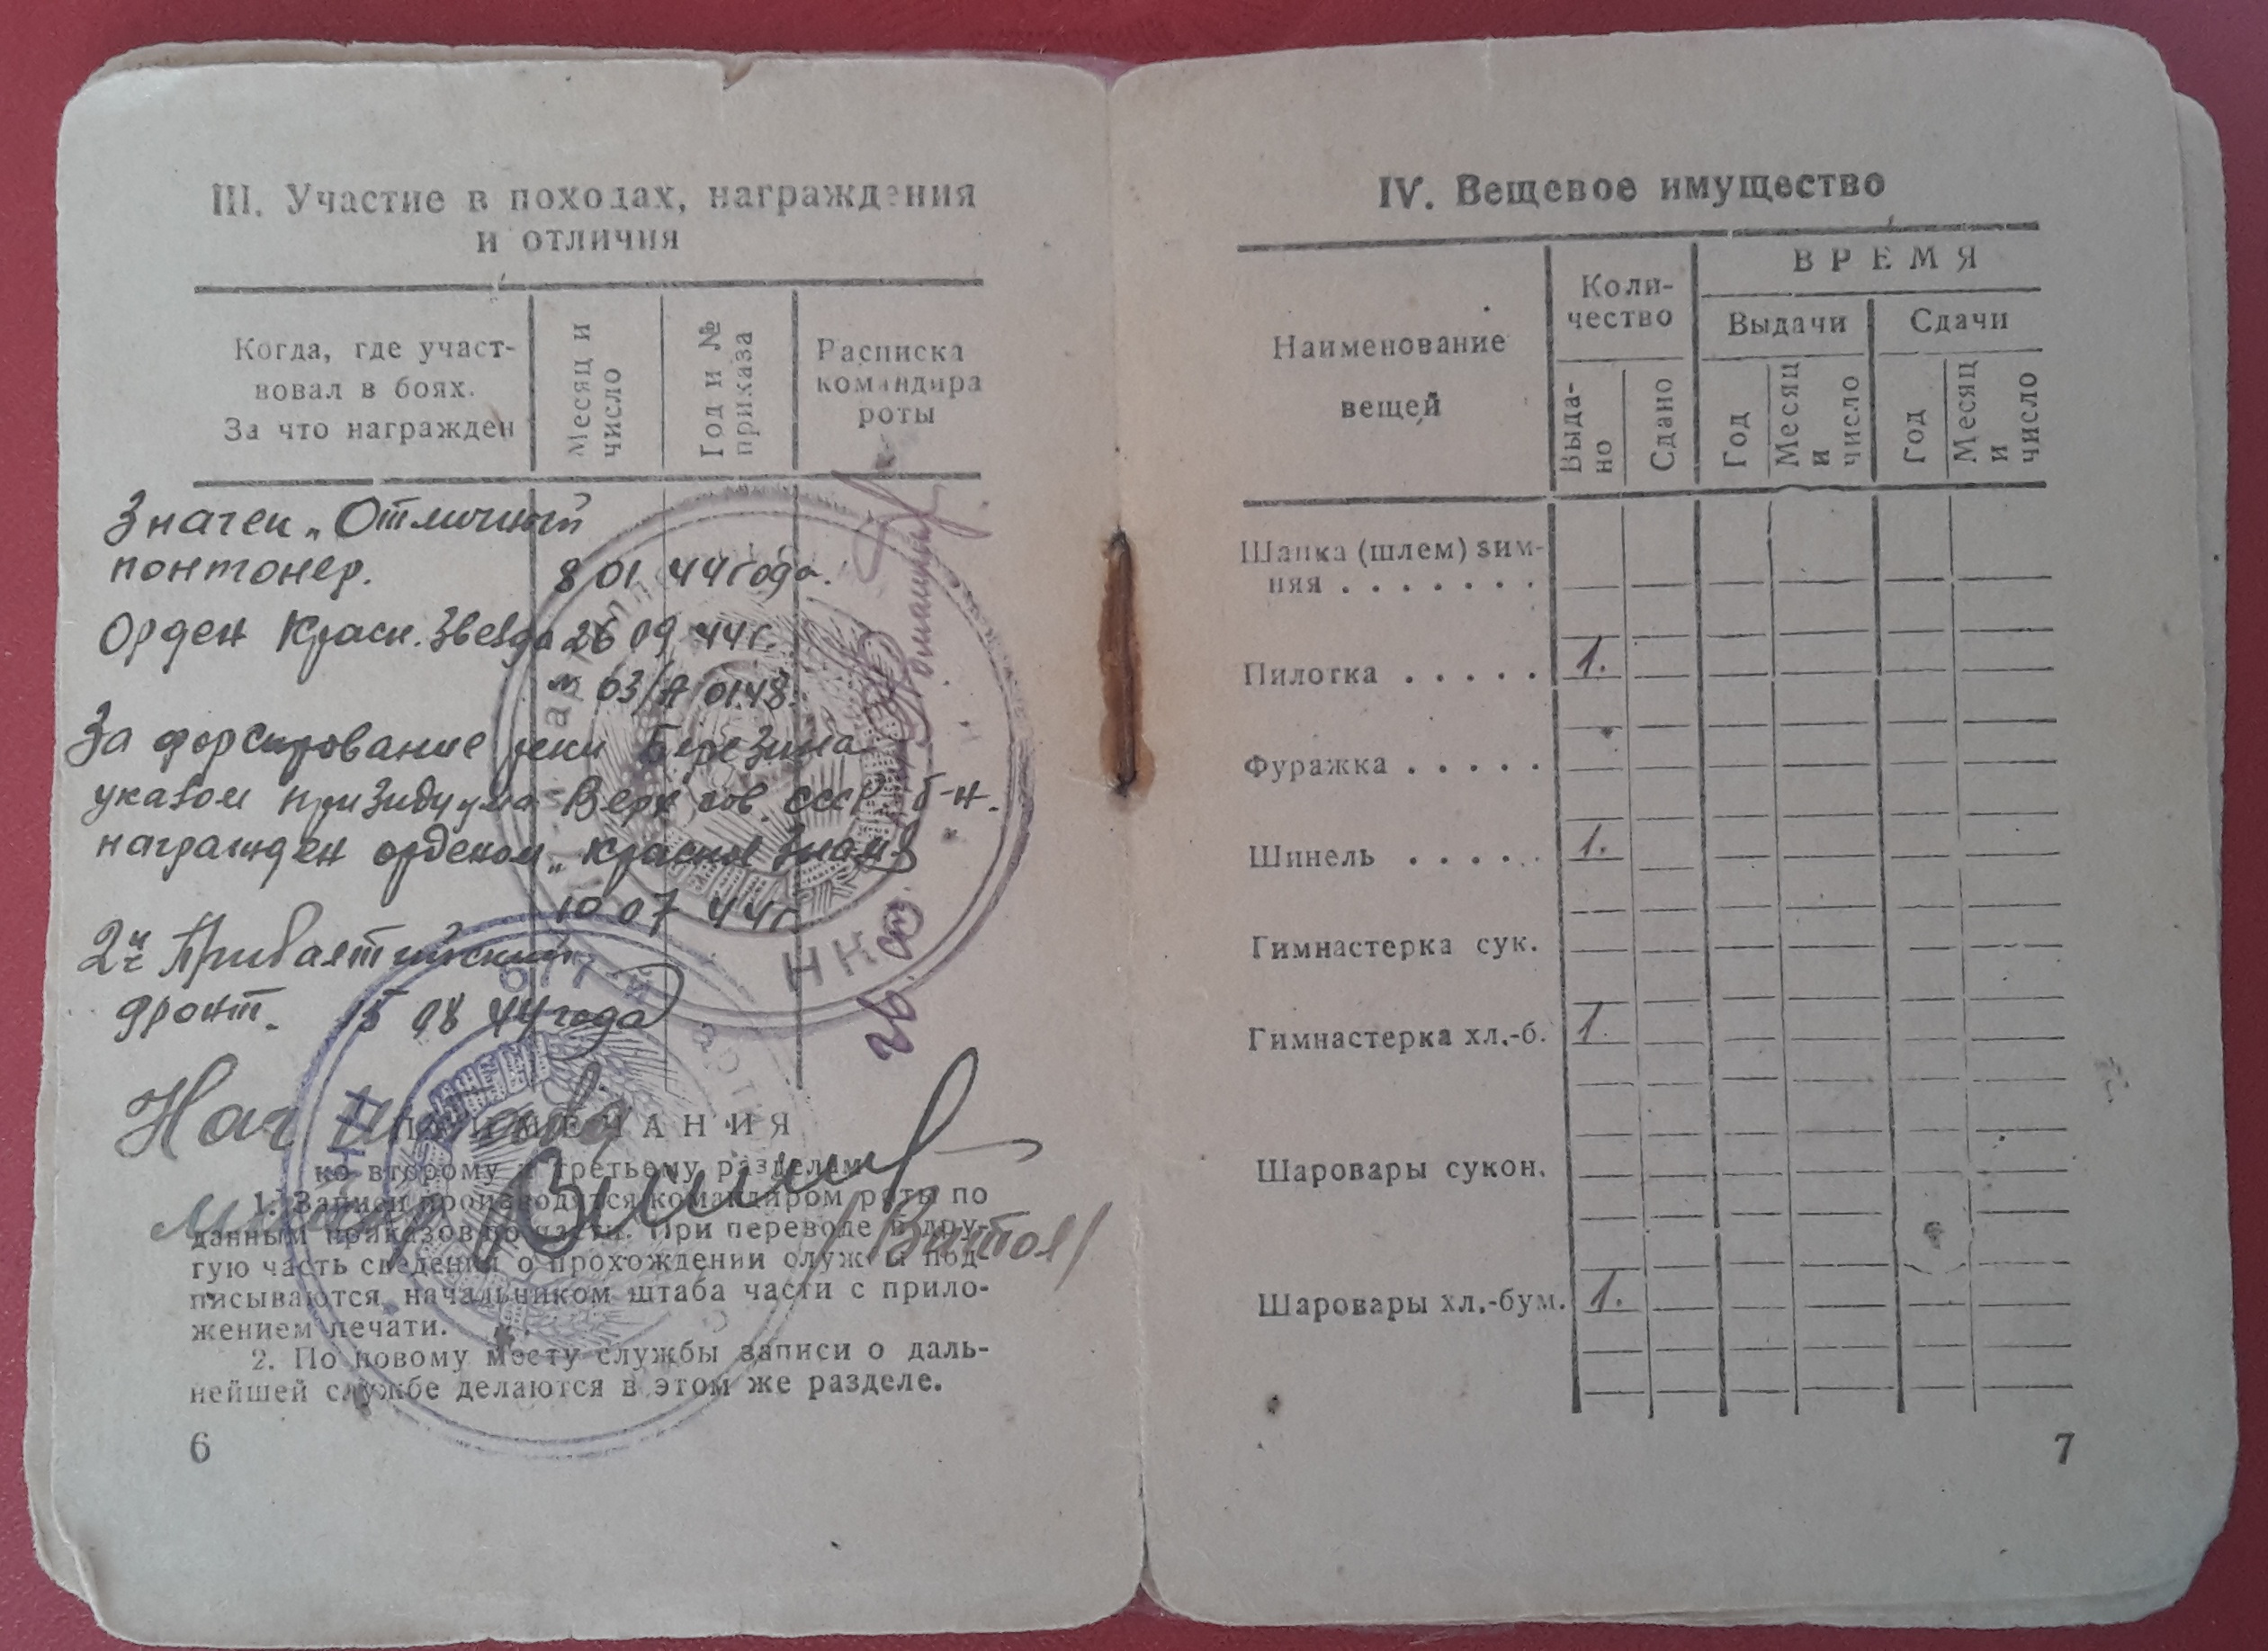 III. Участие в походах, награждения
и отличия
Когда, где участ-
вовал в боях.
За что награжден
Месяц и
число
Год и №
приказа
Расписка
командира
роты
Значек „Отличный
понтонер. 8 01 44 года.
Орден Красн. Звезда 26 09 44 г.
№ 03/
За форсирование реки Березина
указом призидиума Верх сов. СССР б-н.
награжден орденом „Красное
10 07 44 г.
2й Прибалтийский
фронт. 15 08 44 года
Нач штаба
майор
ПРИМЕЧАНИЯ
ко второму и третьему разделам
1. Записи производятся командиром роты по
данным приказов по части. При переводе в дру-
гую часть сведения о прохождении службы под-
писываются начальником штаба части с прило-
жением печати.
2. По новому месту службы записи о даль-
нейшей службе делаются в этом же разделе.
6
IV. Вещевое имущество
Наименование
вещей
Коли-
чество
ВРЕМЯ
Выдачи
Сдачи
Выда-
но
Сдано
Год
Месяц
и
число
Год
Месяц
и
число
Шапка (шлем) зим-
няя . . . . . . .
Пилотка . . . . . 1.
Фуражка . . . . .
Шинель . . . . . 1.
Гимнастерка сук.
Гимнастерка хл.-б. 1.
Шаровары сукон.
Шаровары хл.-бум. 1.
7